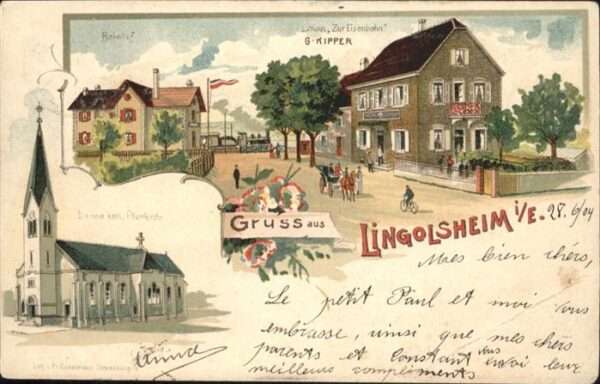 Bahnhof
"Zur Eisenbahn"
G. KIPPER
kath. Pfarrkirche
Gruss aus
LINGOLSHEIM i/E.
28. 6/04
Mes bien chers,
Le petit Paul et moi vous
embrasse, ainsi que mes chers
parents et Constant vous envoi leur
meilleurs compliments